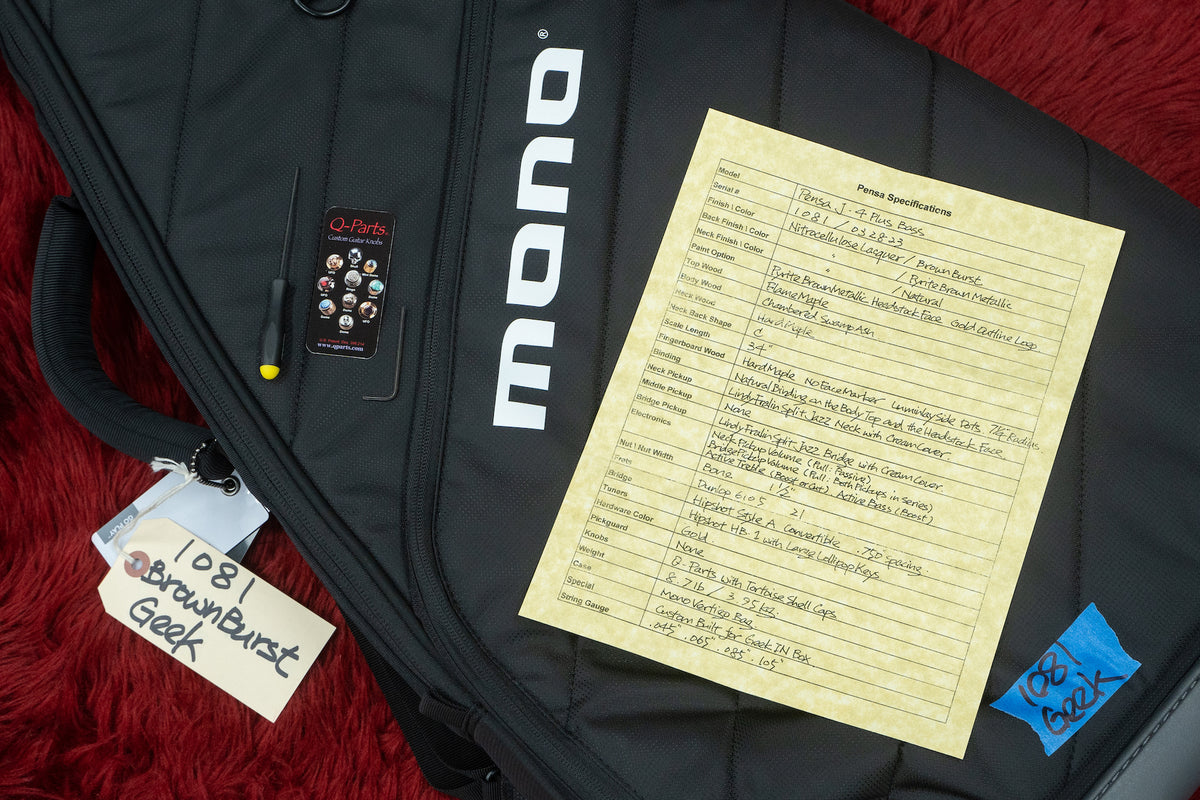 mono®
Q-Parts
Custom Guitar Knobs
www.qparts.com
GO PLAY
1081
BrownBurst
Geek
Pensa Specifications
Model Pensa J-4 Plus Bass
Serial # 1081 / 032823
Finish \ Color Nitrocellulose Lacquer / BrownBurst
Back Finish \ Color " / Purite Brown Metallic
Neck Finish \ Color " / Natural
Paint Option Purite Brown Metallic Headstock Face Gold Outline Logo
Top Wood Flame Maple
Body Wood Chambered Swamp Ash
Neck Wood Hard Maple
Neck Back Shape C
Scale Length 34"
Fingerboard Wood Hard Maple No Face Marker Luminlay Side Dots 7¼" Radius.
Binding Natural Binding on the Body Top and the Headstock Face
Neck Pickup Lindy Fralin Split Jazz Neck with Cream Cover.
Middle Pickup None
Bridge Pickup Lindy Fralin Split Jazz Bridge with Cream Cover.
Electronics Neck Pickup Volume (Pull: Passive)
Bridge Pickup Volume (Pull: Both Pickups in series)
Active Treble (Boost or Cut) Active Bass (Boost)
Nut \ Nut Width Bone 1½"
Frets Dunlop 6105 21
Bridge Hipshot Style A Convertible .750 Spacing.
Tuners Hipshot HB. 1 with Large Lollipop Keys
Hardware Color Gold
Pickguard None
Knobs Q-Parts with Tortoise Shell Caps
Weight 8.7 lb / 3.95 kg.
Case Mono Vertigo Bag
Special Custom Built for Geek IN Box.
String Gauge .045" .065" .085" .105"
1081
Geek